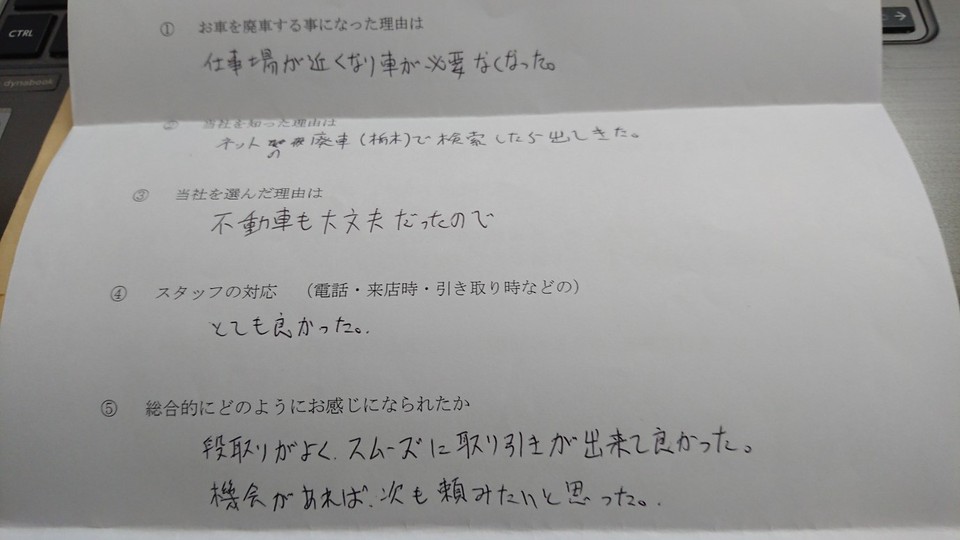 CTRL
dynabook
① お車を廃車する事になった理由は
仕事場が近くなり車が必要なくなった。
② 当社を知った理由は
ネットの廃車(栃木)で検索したら出てきた。
③ 当社を選んだ理由は
不動車も大丈夫だったので
④ スタッフの対応 （電話・来店時・引き取り時などの）
とても良かった。
⑤ 総合的にどのようにお感じになられたか
段取りがよく、スムーズに取り引きが出来て良かった。
機会があれば、次も頼みたいと思った。